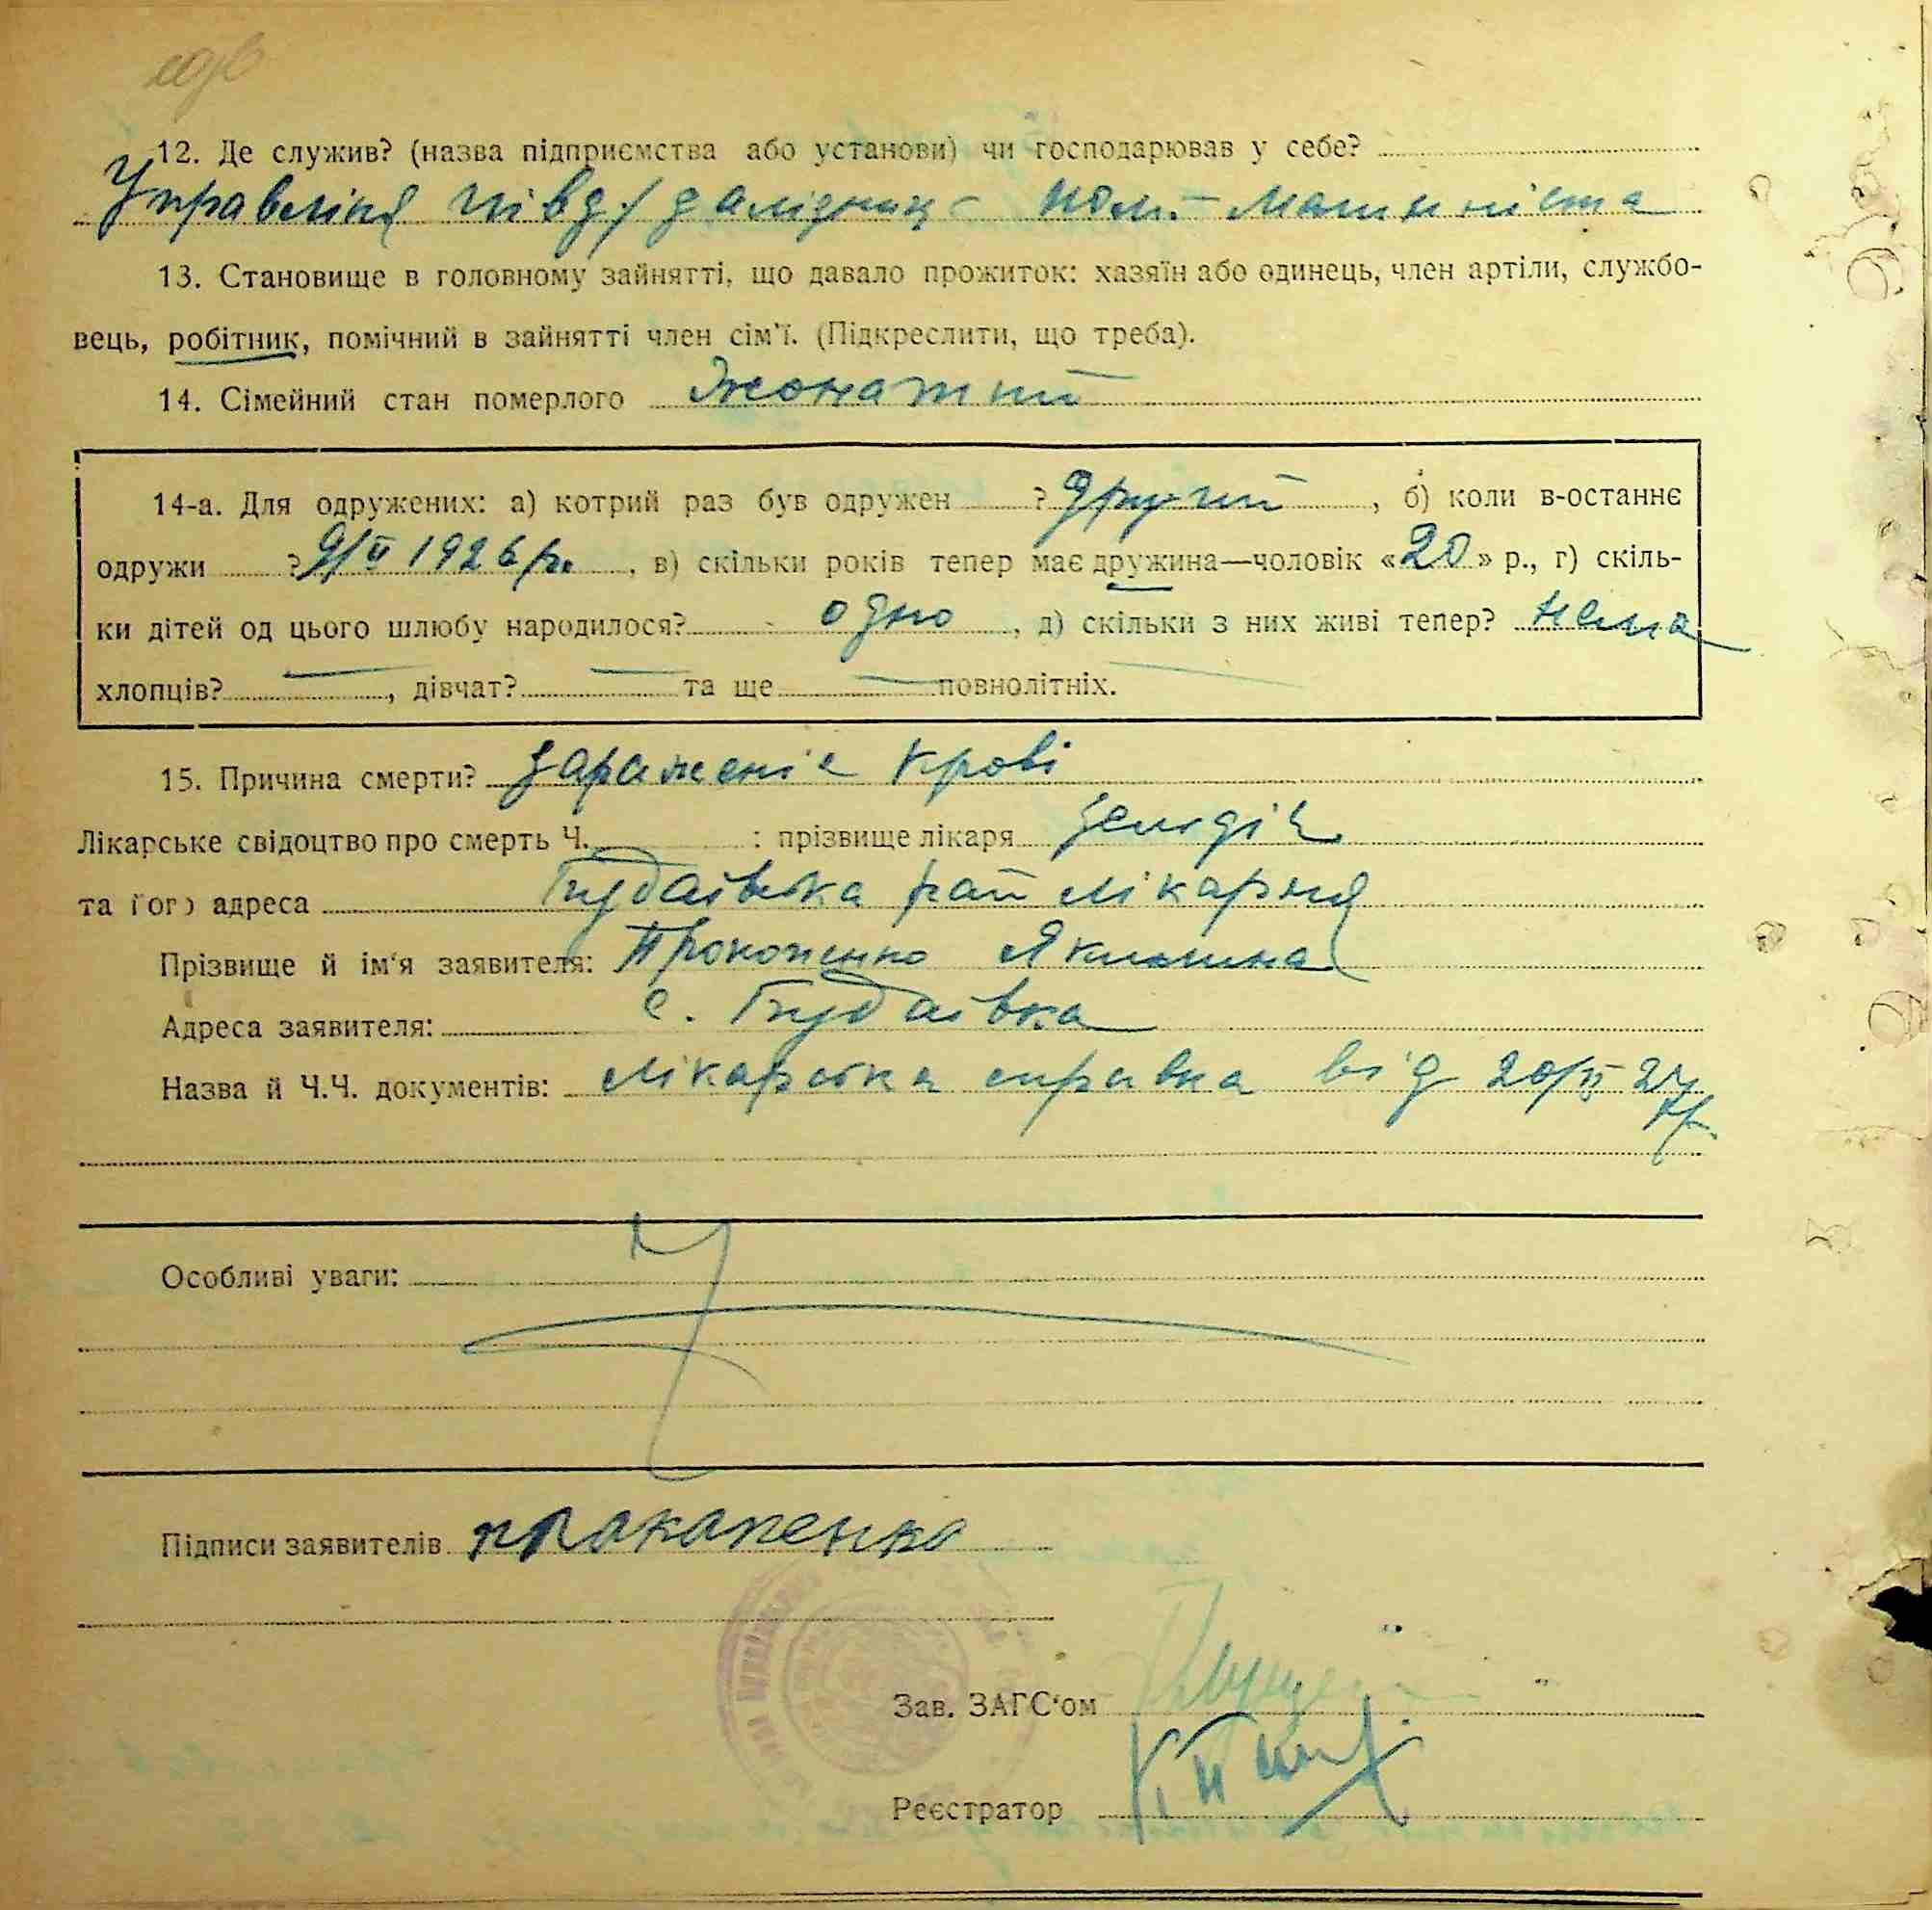 12. Де служив? (назва підприємства або установи) чи господарював у себе?
Управлінн півд/ залізниц – пом.– машиніста
13. Становище в головному зайнятті, що давало прожиток: хазяїн або одинець, член артіли, службо-
вець, робітник, помічний в зайнятті член сім'ї. (Підкреслити, що треба).
14. Сімейний стан померлого Жонатий
14-а. Для одружених: а) котрий раз був одружен ? другий , б) коли в-останнє
одружи ? 9/II 1926 р. , в) скільки років тепер має дружина—чоловік «20» р., г) скіль-
ки дітей од цього шлюбу народилося? одно , д) скільки з них живі тепер? нема
хлопців? — , дівчат? — та ще — повнолітніх.
15. Причина смерти? зараженіє крові
Лікарське свідоцтво про смерть Ч. : прізвище лікаря
та його адреса Будаївська рай лікарня
Прізвище й ім'я заявителя: Прокопенко Якилина
Адреса заявителя: с. Будаївка
Назва й Ч.Ч. документів: лікарська справка від 20/II 27 р.
Особливі уваги:
Підписи заявителів прокапенко
Зав. ЗАГС'ом
Реєстратор